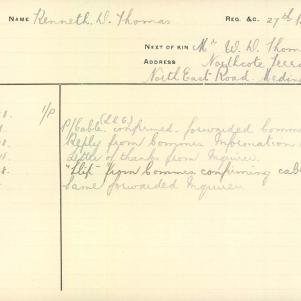 NAME Kenneth D. Thomas REG. &C. 27th
NEXT OF KIN Mr W. D. Thom
ADDRESS Northcote Terra
North East Road. Medin
1/P
P/Cable confirmed. forwarded Comm
Reply from Commrs Information
Letter of thanks from Inquirer.
"Slip" from Commrs confirming cab
Same forwarded Inquirer